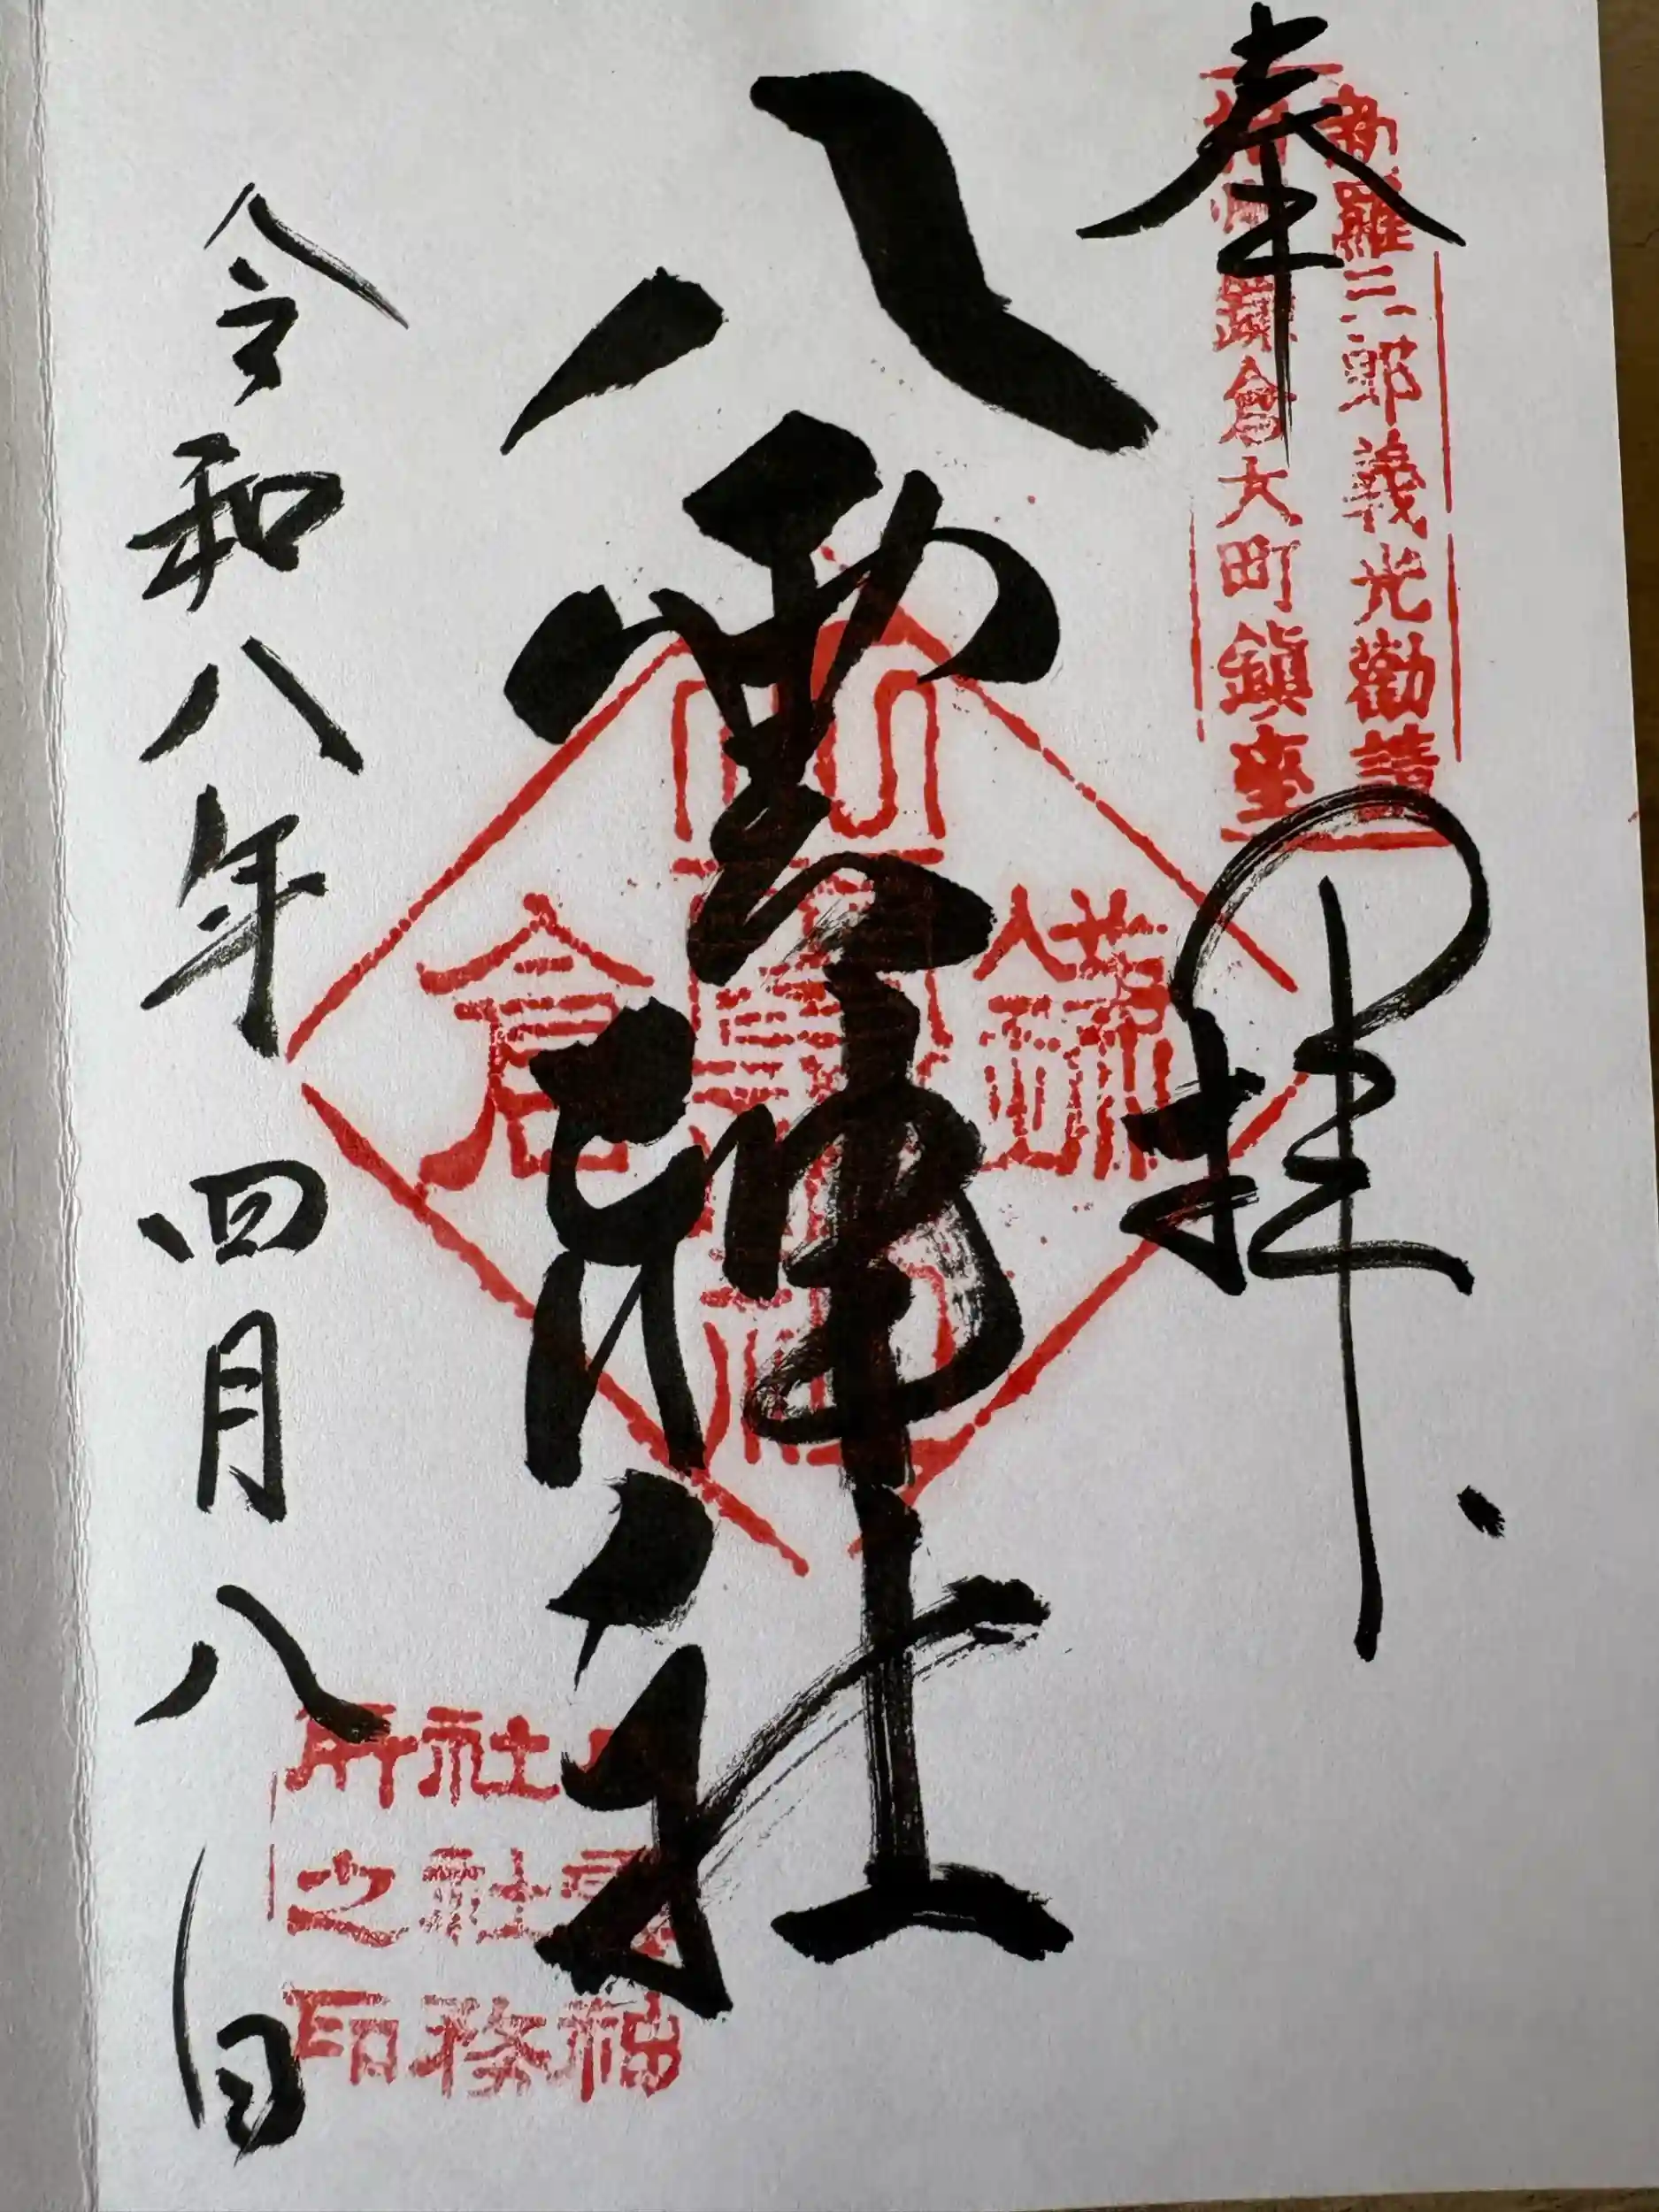 奉拝
新羅三郎義光勧請
鎌倉大町鎮座
八雲神社
鎌倉
令和八年四月八日
八雲神
社社務
所之印